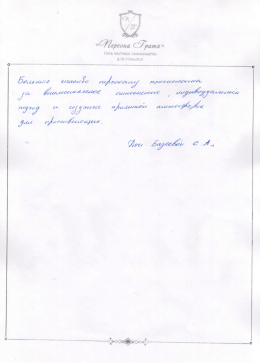 «Персона Грата»
Большое спасибо персоналу пансионата
за внимательное отношение, индивидуальный
подход и создание приятной атмосферы
для проживающих.
Базеевой С. А.